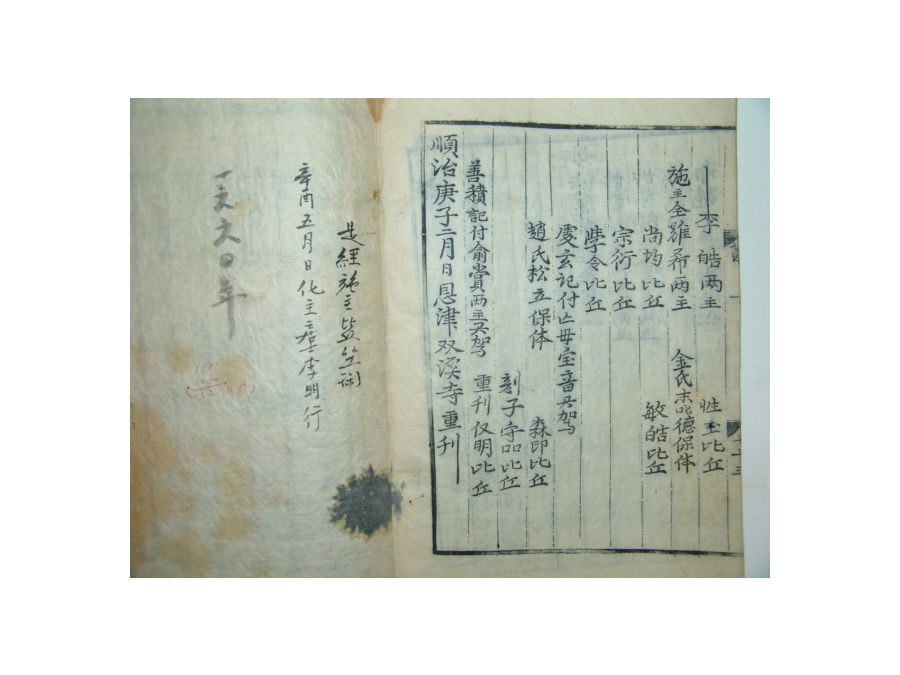 李皓兩主　性玉比丘
施主全雄希兩主　金氏末叱德保体
尚均比丘　敏皓比丘
宗衍比丘
學令比丘
處玄記付亡母宝音灵駕
趙氏松立保体　森印比丘
刻子守品比丘
善積記付俞賞两主灵駕　重刊仅明比丘
順治庚子二月日恩津双溪寺重刊
是經施主
辛酉五月日化主李明行
一六六〇年